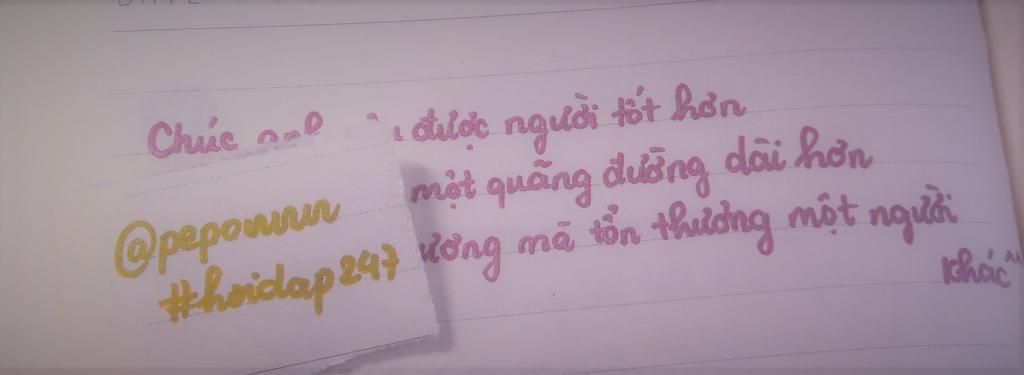 Chúc anh được người tốt hơn
một quãng đường dài hơn
ương mà tổn thương một người
khác"
@pepouuu
#hoidap247